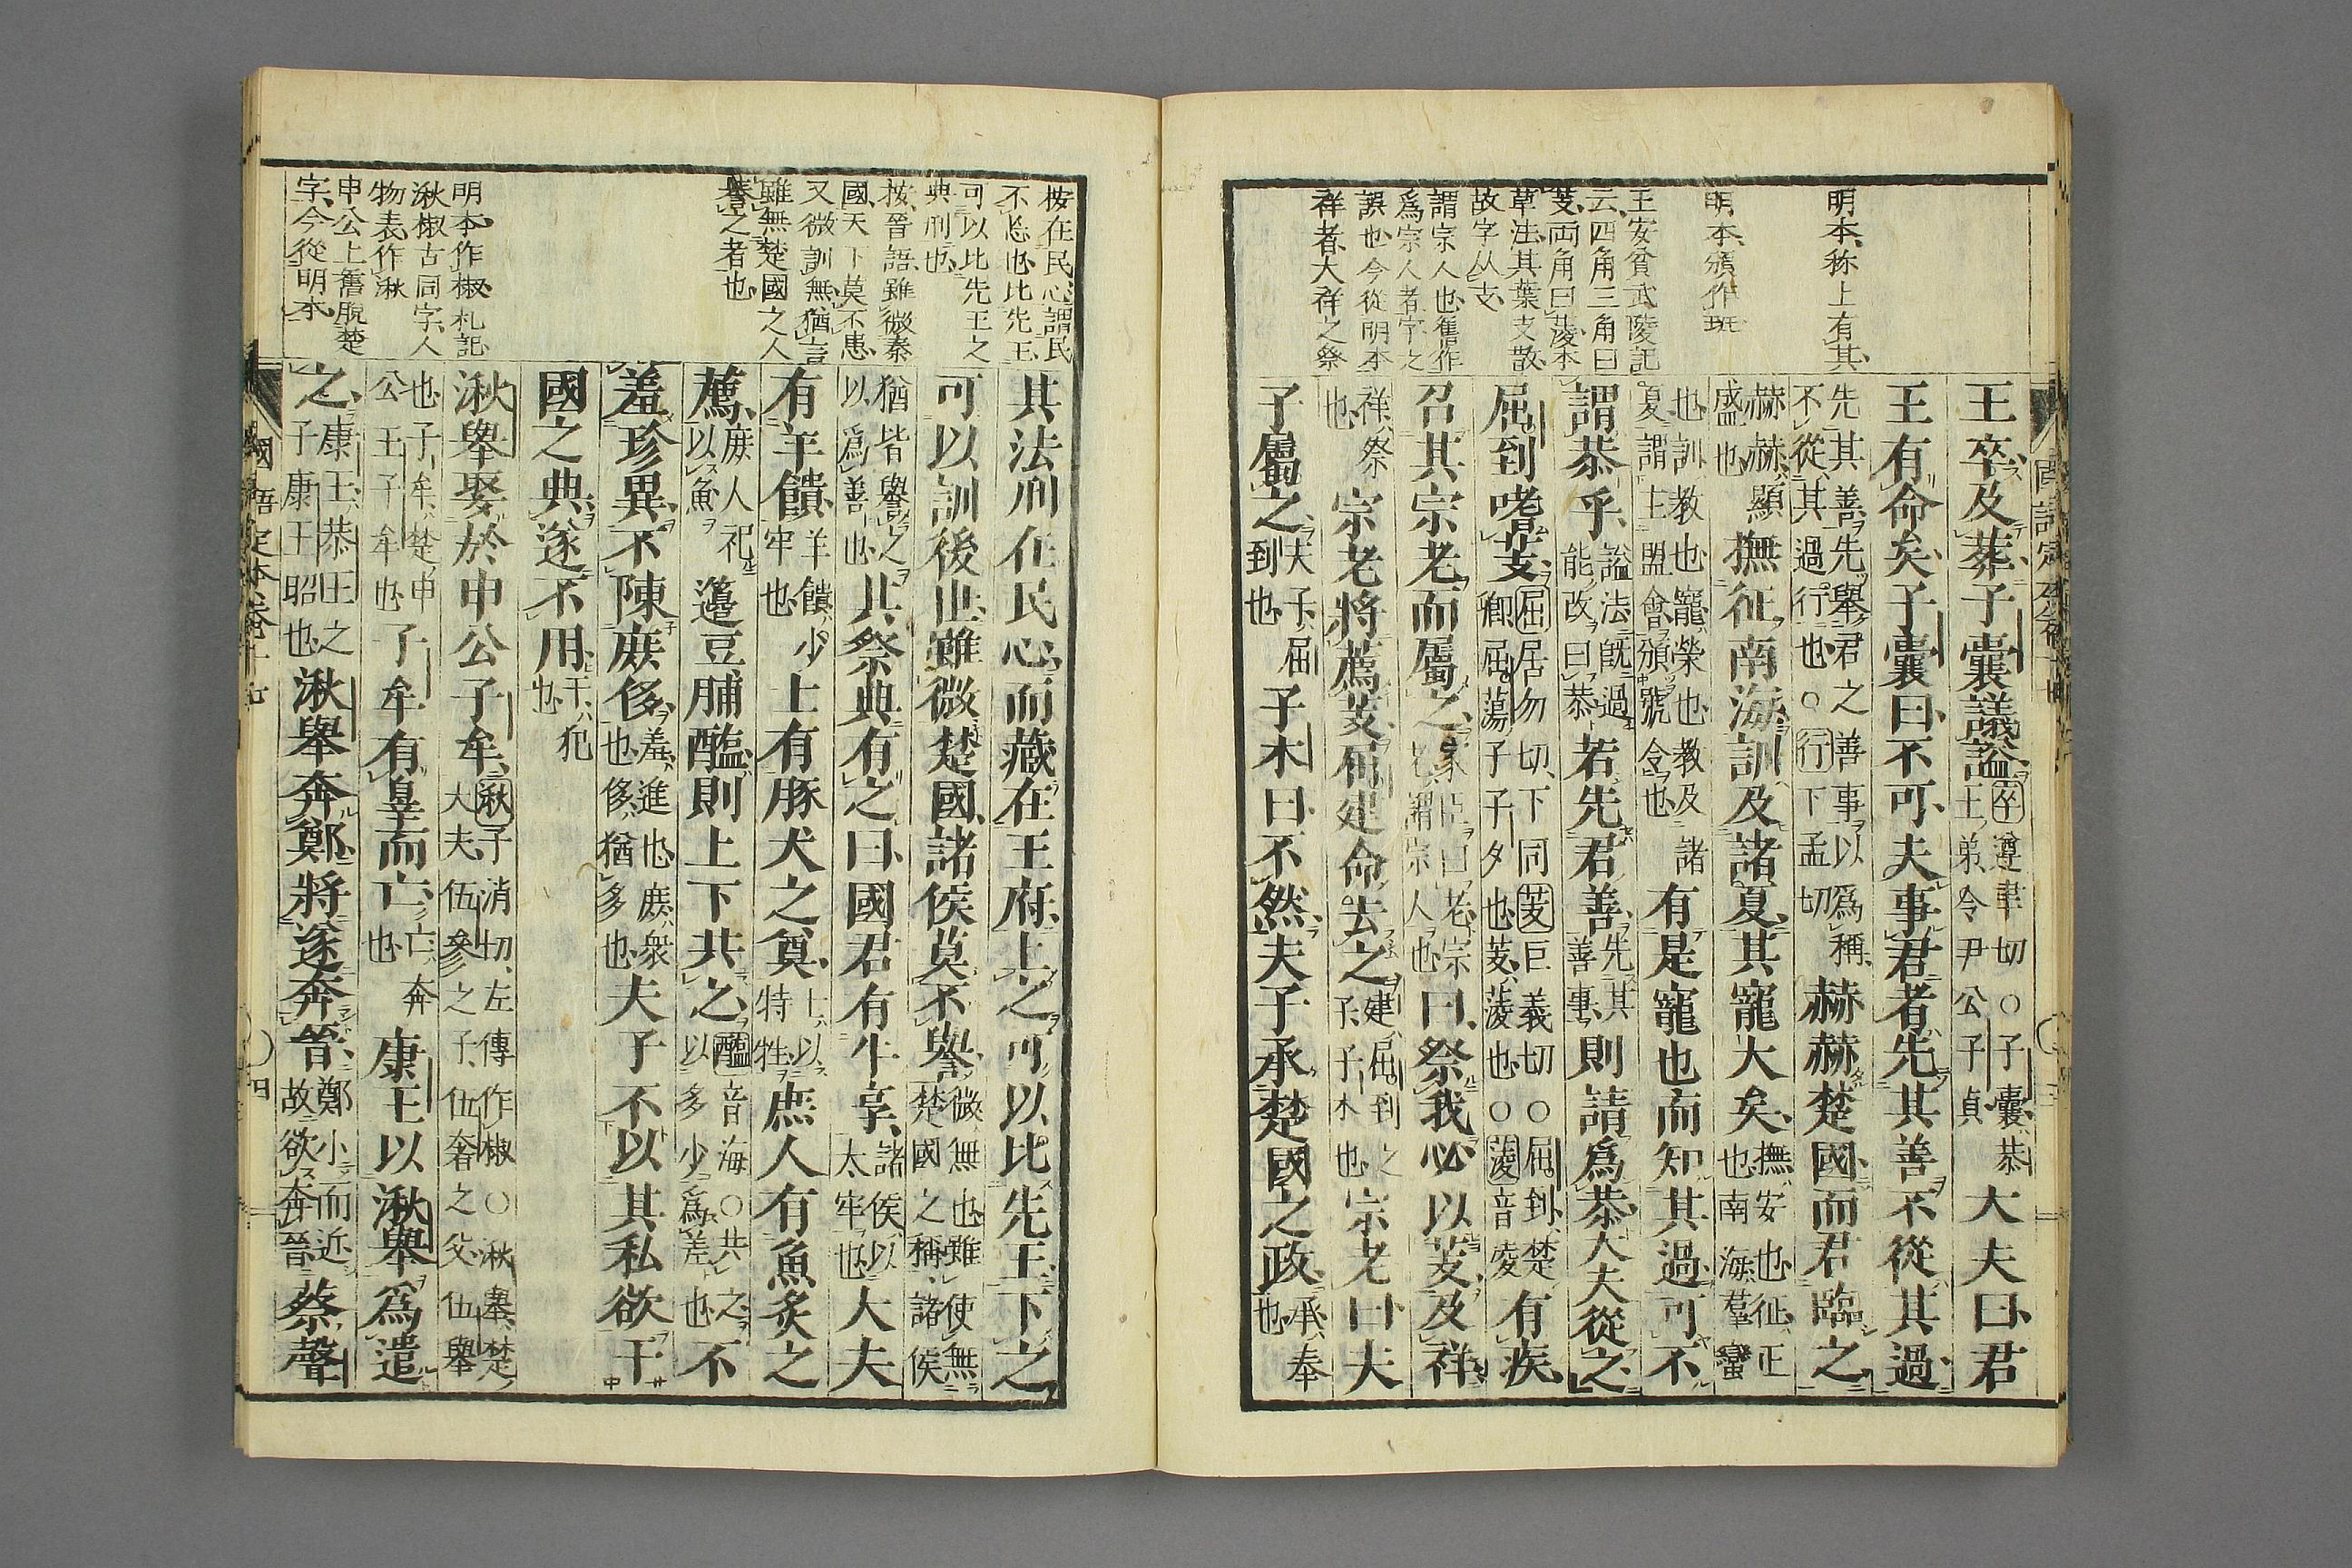 明本称上有其
明本頒作班
王安貧武陵記
云四角三角曰
芰両角曰蔆本
草法其葉支散
故字从支
謂宗人也舊作
爲宗人者字之
誤也今從明本
祥者大祥之祭
王卒及葬子囊議謚卒遵聿切○子囊恭王弟令尹公子貞大夫曰君
王有命矣子囊曰不可夫事君者先其善不從其過
先其善先舉君之善事以爲稱不從其過行也○行下孟切赫赫楚國而君臨之
赫赫顯盛也撫征南海訓及諸夏其寵大矣撫安也征正也南海羣蠻
也訓教也寵榮也教及諸夏謂主盟會頒號令也有是寵也而知其過可不
謂恭乎謚法既過能改曰恭若先君善先其善事則請爲恭大夫從之
屈到嗜芰屈居勿切下同芰巨義切○屈到楚卿屈蕩子子夕也芰蔆也○蔆音凌有疾
召其宗老而屬之家臣曰老宗老謂宗人也曰祭我必以芰及祥
祥祭也宗老將薦芰屈建命去之建屈到之子子木也宗老曰夫
子屬之夫子屈到也子木曰不然夫子承楚國之政承奉也
國語定本卷十七
按在民心謂民
不忘也比先王
可以比先王之
典刑也
按晉語雖微秦
國天下莫不患
又微訓無猶言
雖無楚國之人
譽之者也
明本作椒札記
湫椒古同字人
物表作湫
申公上舊脫楚
字今從明本
其法刑在民心而藏在王府上之可以比先王下之
可以訓後世雖微楚國諸侯莫不譽微無也雖使無楚國之稱諸侯
猶皆譽之以爲善也其祭典有之曰國君有牛享諸侯以太牢也大夫
有羊饋羊饋少牢也士有豚犬之奠士以特牲庶人有魚炙之
薦庶人祀以魚籩豆脯醢則上下共之醢音海○共之以多少爲差也不
羞珍異不陳庶侈羞進也庶衆也侈猶多也夫子不以其私欲干
國之典遂不用干犯也
湫舉娶於申公子牟湫子消切左傳作椒○湫舉楚大夫伍參之子伍奢之父伍舉
也子牟楚申公王子牟也子牟有辠而亡亡奔也康王以湫舉爲遣
之康王恭王之子康王昭也湫舉奔鄭將遂奔晉鄭小而近故欲奔晉蔡聲
國語定本卷十七
四